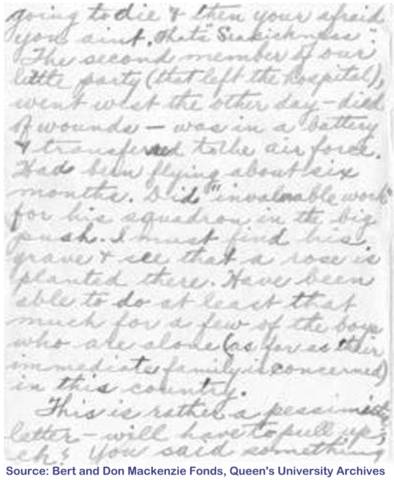 going to die & then your afraid
you aint. Thats Seasickness".
The second member of our
little party (that left the hospital),
went west the other day - died
of wounds - was in a battery
& transfered to the air force.
Had been flying about six
months. Did "invaluable work"
for his squadron in the big
push. I must find his
grave & see that a rose is
planted there. Have been
able to do at least that
much for a few of the boys
who are alone (as far as their
immediate family is concerned)
in this country.
This is rather a pessimistic
letter - will have to pull up,
eh? You said something
Source: Bert and Don Mackenzie Fonds, Queen's University Archives